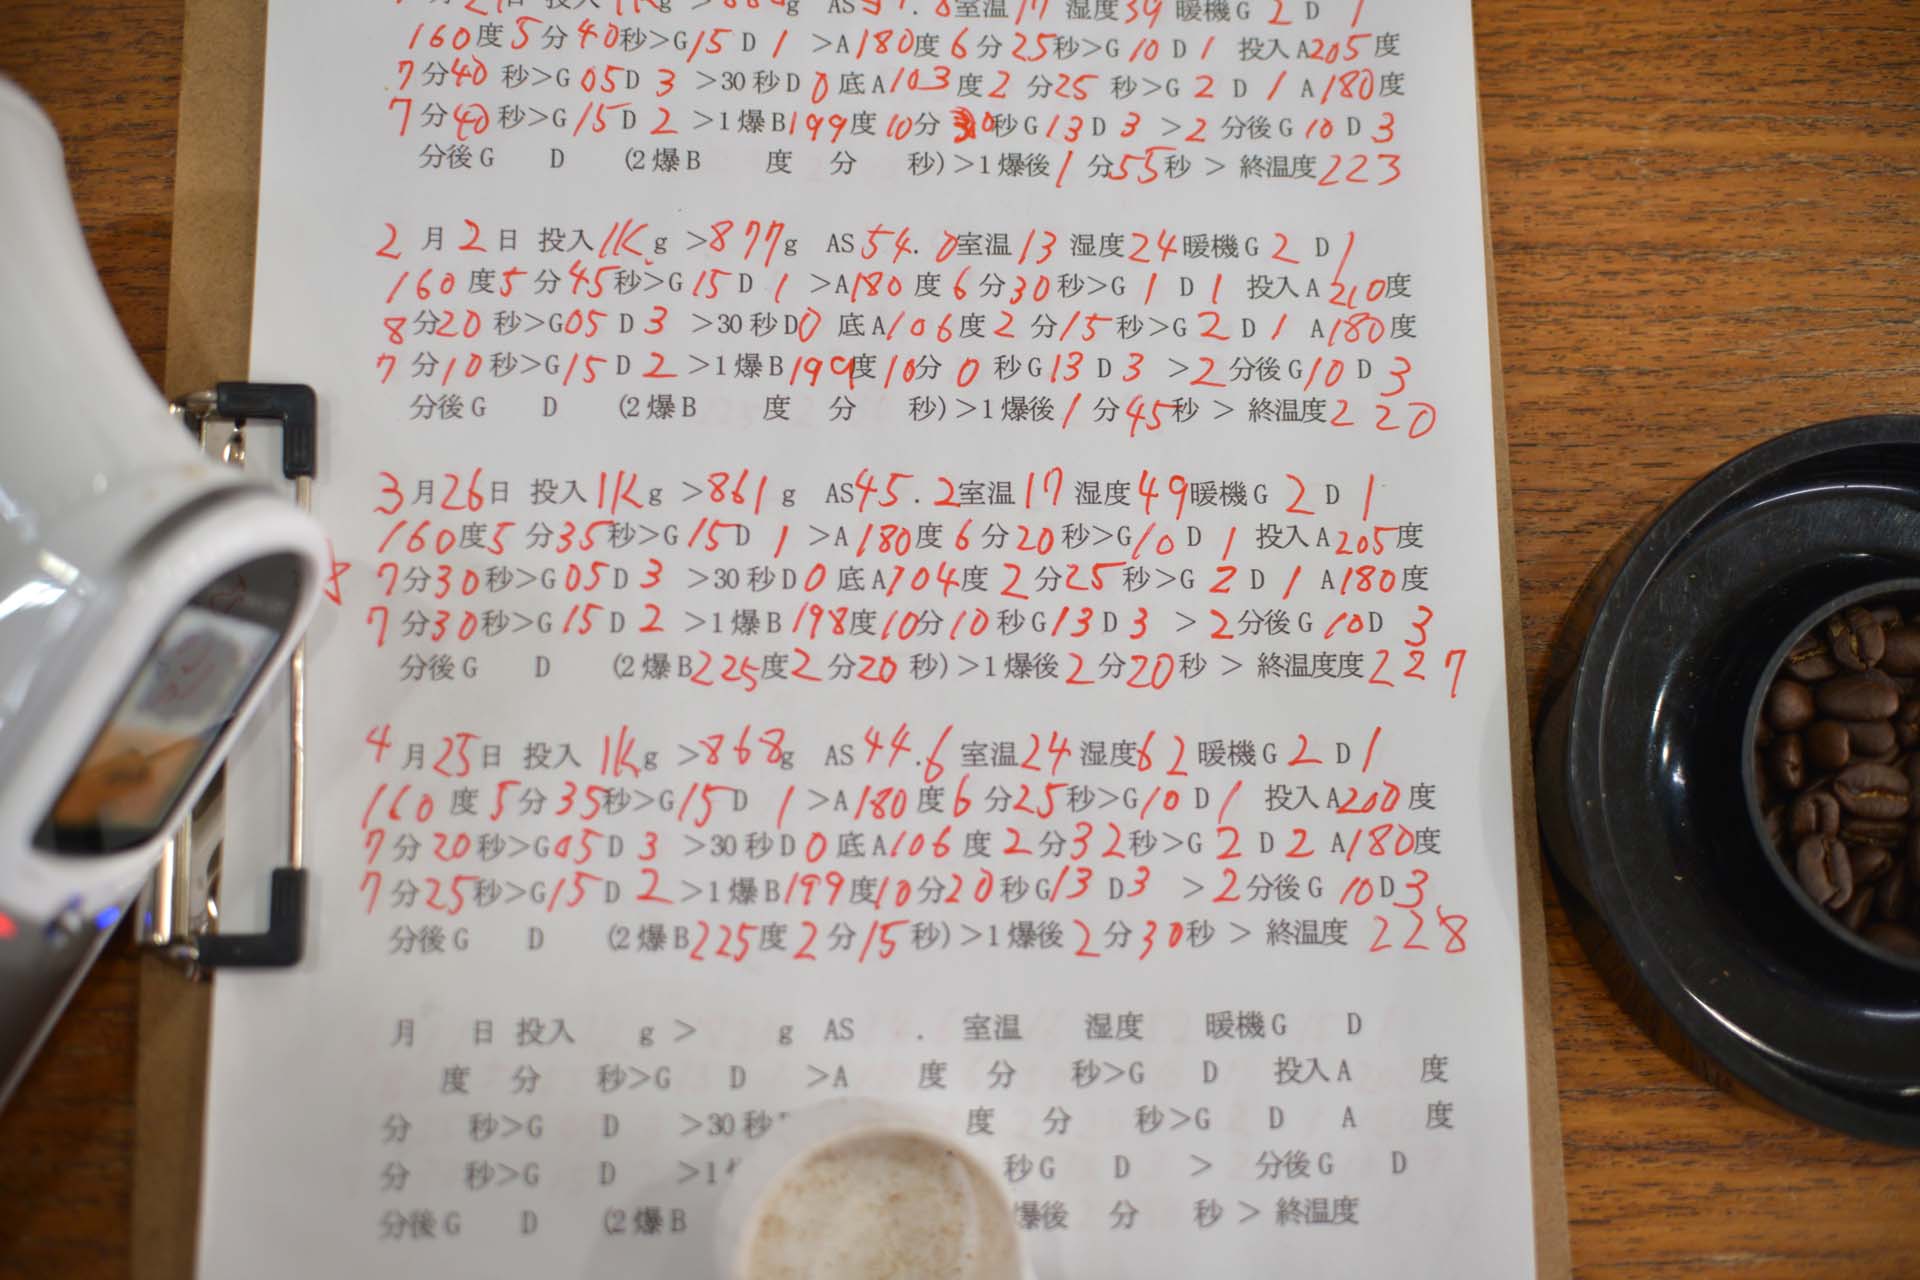 月2 日 投入1Kg > g AS .8室温17 湿度39 暖機G 2 D 1
160度5分40秒>G15 D 1 >A180度6分25秒>G10 D1 投入A205度
7分40秒>G05D 3 >30秒D 0 底A103度2分25秒>G 2 D 1 A180度
7分40秒>G15D 2 >1爆B199度10分 秒G13D 3 >2分後G10D3
分後G D (2爆B 度 分 秒)>1爆後1分55秒 > 終温度223
2月2日 投入1Kg >877g AS54.0室温13 湿度24暖機G 2 D 1
160度5分45秒>G15 D 1 >A180度6分30秒>G 1 D 1 投入A210度
8分20秒>G05 D 3 >30秒D0 底A106度2分15秒>G 2 D 1 A180度
7分10秒>G15 D 2 >1爆B199度10分0秒G13 D 3 >2分後G10 D 3
分後G D (2爆B 度 分 秒)>1爆後1分45秒 > 終温度220
3月26日 投入1Kg >861g AS45.2室温17 湿度49暖機G 2 D 1
160度5分35秒>G15D 1 >A180度6分20秒>G10 D 1 投入A205度
8 7分30秒>G05D 3 >30秒D0 底A104度2分25秒>G 2 D 1 A180度
7分30秒>G15D 2 >1爆B198度10分10秒G13D 3 >2分後G10D 3
分後G D (2爆B225度2分20秒)>1爆後2分20秒 > 終温度度227
4月25日 投入1Kg >868g AS44.6室温24湿度62暖機G 2 D1
160度5分35秒>G15D 1 >A180度6分25秒>G10D1 投入A200度
7分20秒>G05D 3 >30秒D0 底A106度2分32秒>G 2 D 2 A180度
7分25秒>G15D 2 >1爆B199度10分20秒G13 D3 >2分後G 10D3
分後G D (2爆B225度2分15秒)>1爆後2分30秒 > 終温度 228
月 日 投入 g > g AS . 室温 湿度 暖機G D
度 分 秒>G D >A 度 分 秒>G D 投入A 度
分 秒>G D >30秒 度 分 秒>G D A 度
分 秒>G D >1 秒G D > 分後G D
分後G D (2爆B 爆後 分 秒 > 終温度